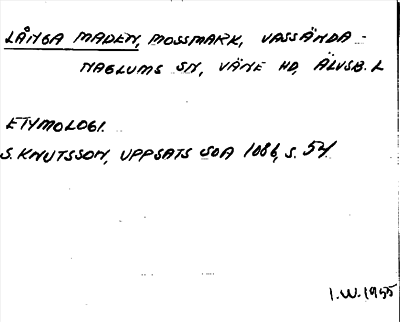 LÅNGA MADEN, MOSSMARK, VASSÄNDA-
NAGLUMS SN, VÄNE HD, ÄLVSB. L
ETYMOLOGI.
S. KNUTSSON, UPPSATS SOA 1086, S. 54
I.W. 1955